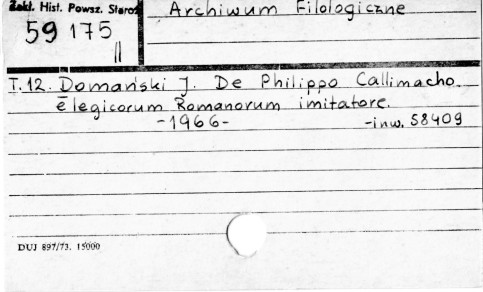 Zakł. Hist. Powsz. Staroż
Archiwum Filologiczne
59 175
II
T. 12. Domański J. De Philippo Callimacho
elegicorum Romanorum imitatore.
-1966-
-inw. 58409
DUJ 897/73. 15000